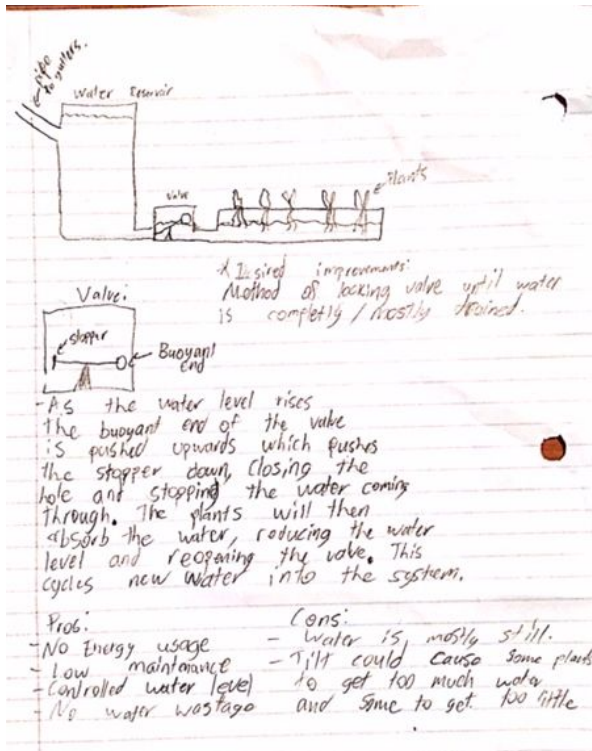 pipe
to gutters.
Water Reservoir
Valve
Plants
* Desired improvements:
Method of locking valve until water
is completly / mostly drained.
Valve:
Stopper
Buoyant
end
- As the water level rises
the buoyant end of the valve
is pushed upwards which pushes
the stopper down, closing the
hole and stopping the water coming
through. The plants will then
absorb the water, reducing the water
level and reopening the valve. This
cycles new water into the system.
Pros:
- No Energy usage
- Low maintenance
- Controlled water level
- No water wastage
Cons:
- Water is mostly still.
- Tilt could cause some plants
to get too much water
and some to get too little